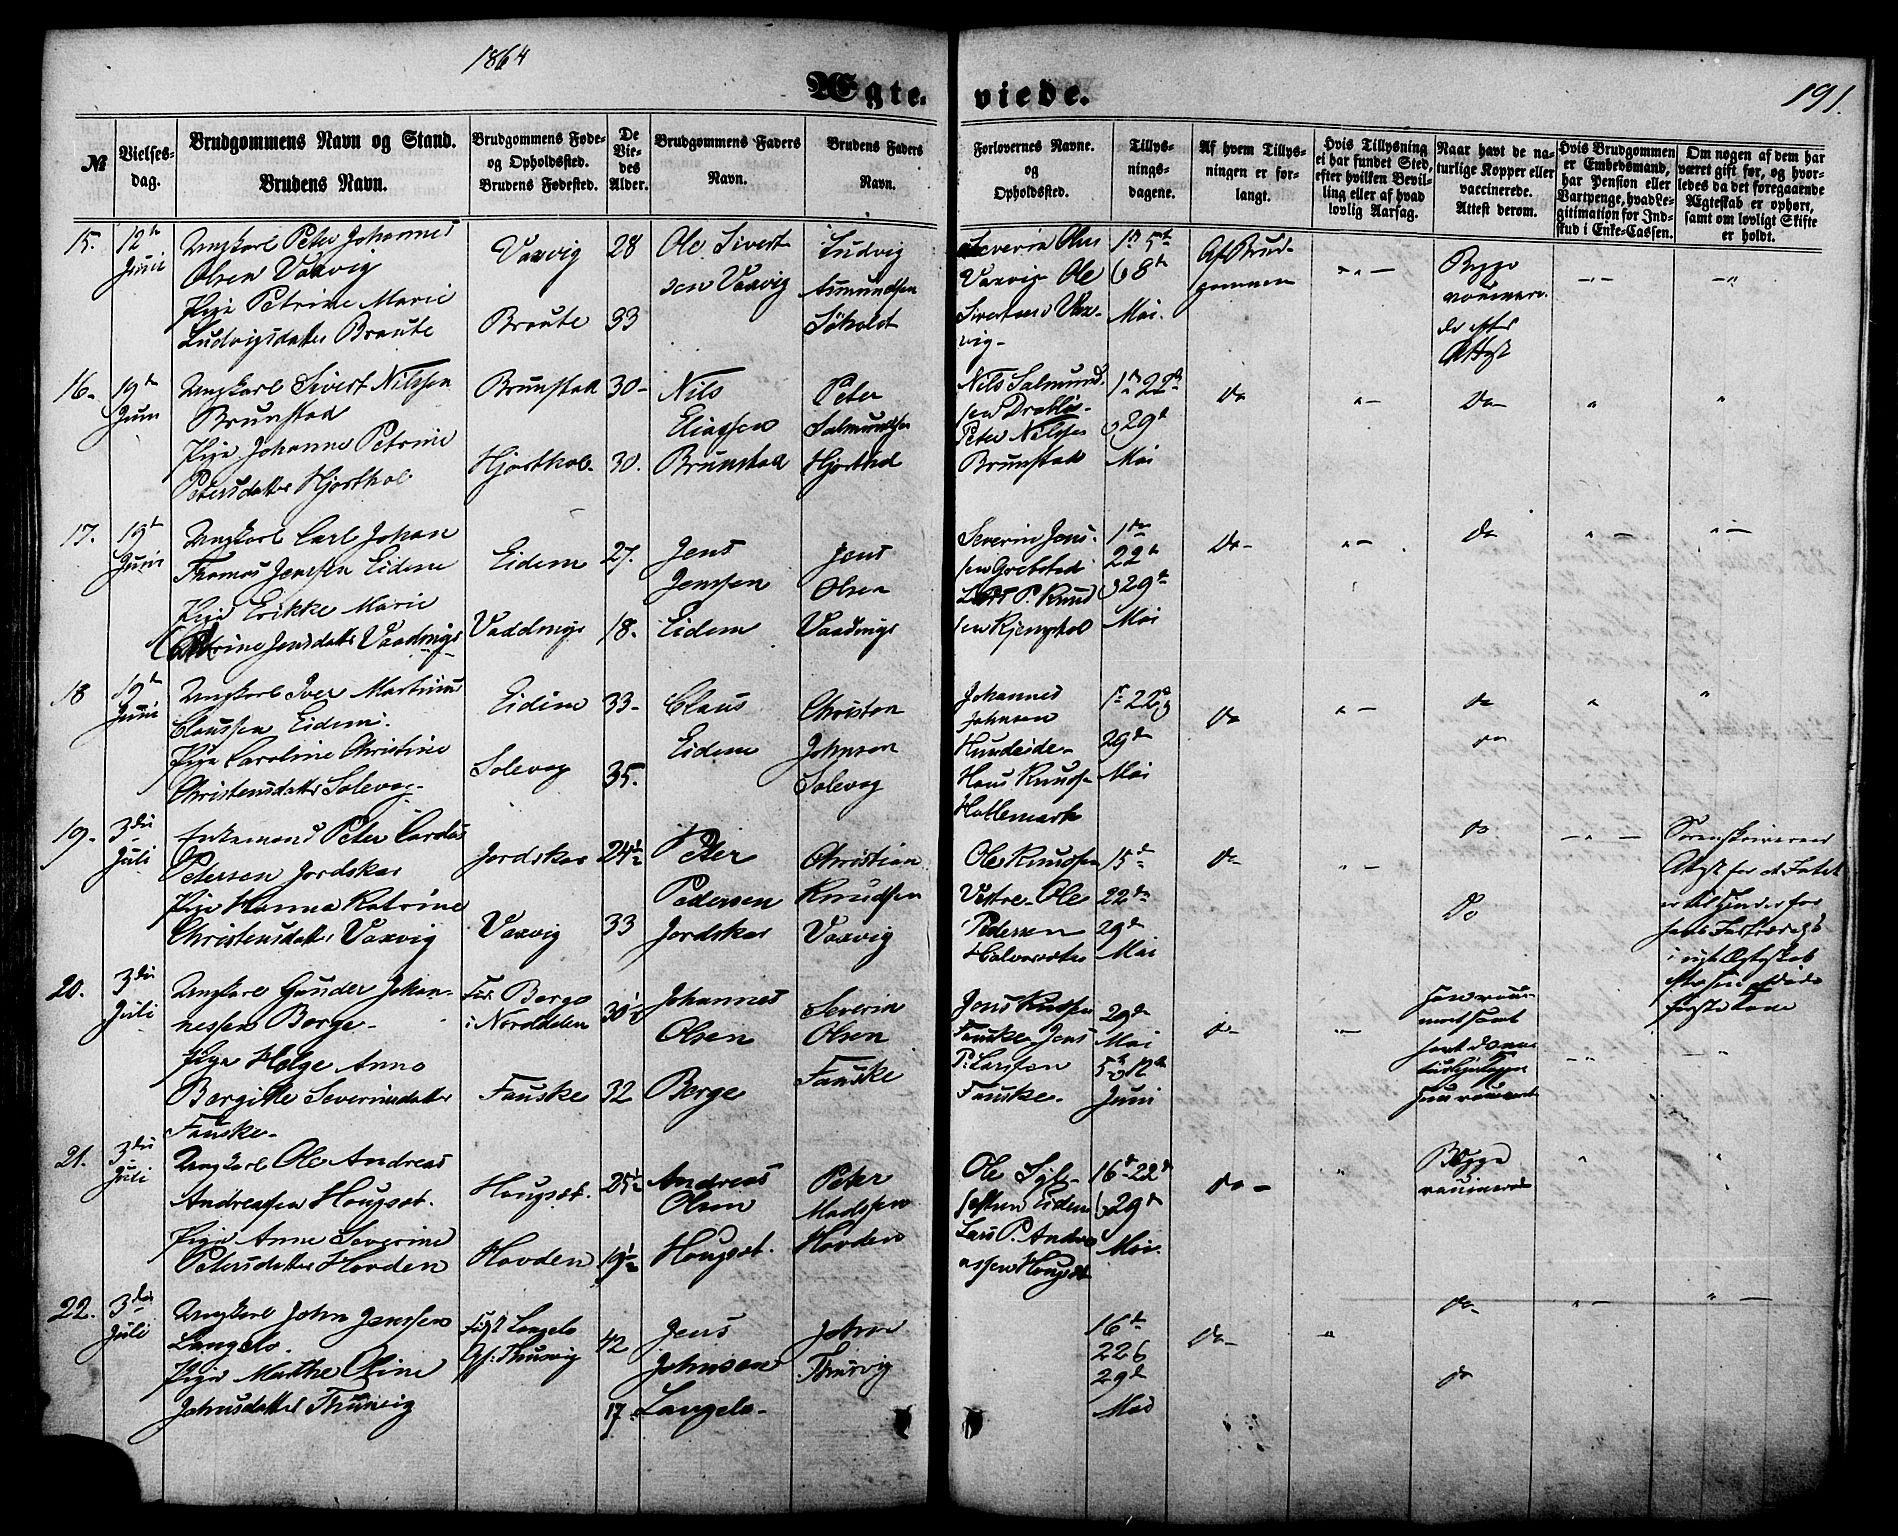 1864
191.
Ægte-viede.
№
Vielses-dag.
Brudgommens Navn og Stand.
Brudens Navn.
Brudgommens Føde-
og Opholdssted.
Brudens Fødested.
De
Vie-
des
Alder.
Brudgommens Faders
Navn.
Brudens Faders
Navn.
Forlovernes Navne.
og
Opholdssted.
Tillys-
nings-
dagene.
Af hvem Tillys-
ningen er for-
langt.
Hvis Tillysning
ei har fundet Sted,
efter hvilken Bevil-
ling eller af hvad
lovlig Aarsag.
Naar havt de na-
turlige Kopper eller
vaccinerede.
Attest derom.
Hvis Brudgommen
er Embedsmand,
har Pension eller
Vartpenge, hvad Le-
gitimation for Ind-
skud i Enke-Cassen.
Om nogen af dem har
været gift før, og hvor-
ledes da det foregaaende
Ægteskab er ophørt,
samt om lovligt Skifte
er holdt.
15.
12te
Juni
Ungkarl Peter Johannes
Olsen Vaxvig
Pige Petrine Marie
Ludvigsdatter Braute
Vaxvig
Braute
28
33
Ole Sivert
sen Vaxvig
Ludvig
Asmundsen
Søholt
Severin Olsen
Vaxvig Ole
Sivertsen Vax-
vig-
1n 5te
8de
Mai.
Af Brud-
gommen
Begge
Attest
16.
19de
Juni
Ungkarl Sivert Nilssen
Brunstad
Pige Johanne Petrine
Petersdatter Hjorthol
Brunstad
Hjorthol.
30-
30.
Nils
Eliassen
Brunstad
Peter
Salmundsen
Hjorthol
Nils Salmund-
sen
Peter Nilssen
Brunstad
1n 22de
29de
Mai
Do
Do
17.
19de
Juni
Ungkarl Carl Johan
Thomas Jenssen Eidem
Pige Erikke Marie
Petrine Jensdatter Vaadnings
Eidem
Vaddnings
27.
18.
Jens
Jenssen
Eidem
Jens
Olsen
Vaadnings
Severin Jens-
sen Grebstad
P. Knud
sen
1ste
22de
29de
Mai
Do-
Do
18
19de
Juni
Ungkarl Iver Martinus
Claussen Eidem.
Pige Caroline Christine
Christensdatter Solevag-
Eidem
Solevag
33-
35.
Claus
Eidem
Christen
Johnsen
Solevag
Johannes
Johnsen
Hundeide-
Hans Knuds-
Hatlemark
1n 22de
29de
Mai
Do
Do
Do
19.
3die
Juli
Enkemand Peter Carolus
Petersen Jordskar
Pige Hanna Katrine
Christensdatter Vaxvig
Jordskar
Vaxvig
24½
33
Peter
Pedersen
Jordskar
Christian
Knudsen
Vaxvig
Ole Knudsen
Vestre- Ole
Pedersen
15de
22de
29de
Mai
Do
Do
Do
Sorenskriverens
Attest for at Intet
er til Hinder for
i nyt Ægteskab
første Kone
20.
3die
Juli
Ungkarl Gunder Johan-
nessen Berge-
Pige Helge Anna
Bergitte Severinsdatter
Fauske-
Fød: Berge
i Norddalen
Fauske
30½
32
Johannes
Olsen
Berge
Severin
Olsen
Fauske
Jens Knudsen
Fauske Jens
P. Larssen
Fauske-
29de
Mai
5te 12te
Juni
Do-
21.
3die
Juli
Ungkarl Ole Andreas
Andreassen Hougset.
Pige Anne Severine
Petersdatter Hovden
Hougset.
Hovden
25½
19½
Andreas
Olsen
Hougset.
Peter
Madssen
Hovden
Ole Syl-
festsen Eidem
Lars P. Andre
assen Hougset
16de 22de
29de
Mai.
Do-
Begge
22.
3die
Juli
Ungkarl John Jenssen
Langelo.
Pige Marthe Oline
Johnsdatter Thunvig
Fød Langelo
Of: Thunvig
42
17
Jens
Johnsen
Langelo-
John
Thunvig
16de
22de
29de
Mai
Do-
Do-
Do